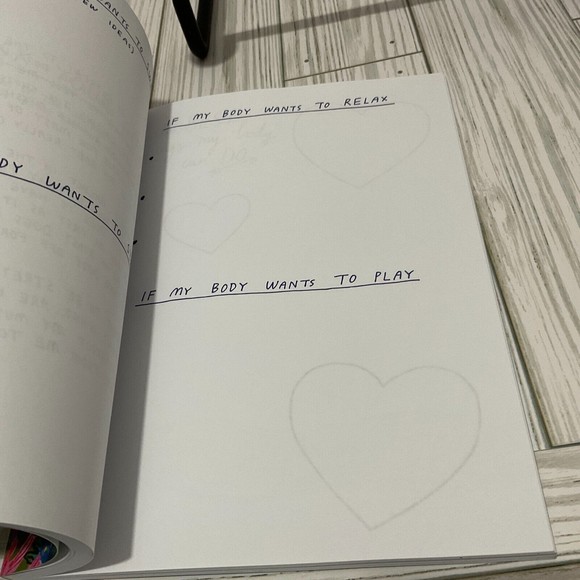 ANTS TO
EW IDEAS)
DY WANTS TO
IF MY BODY WANTS TO RELAX
IF MY BODY WANTS TO PLAY